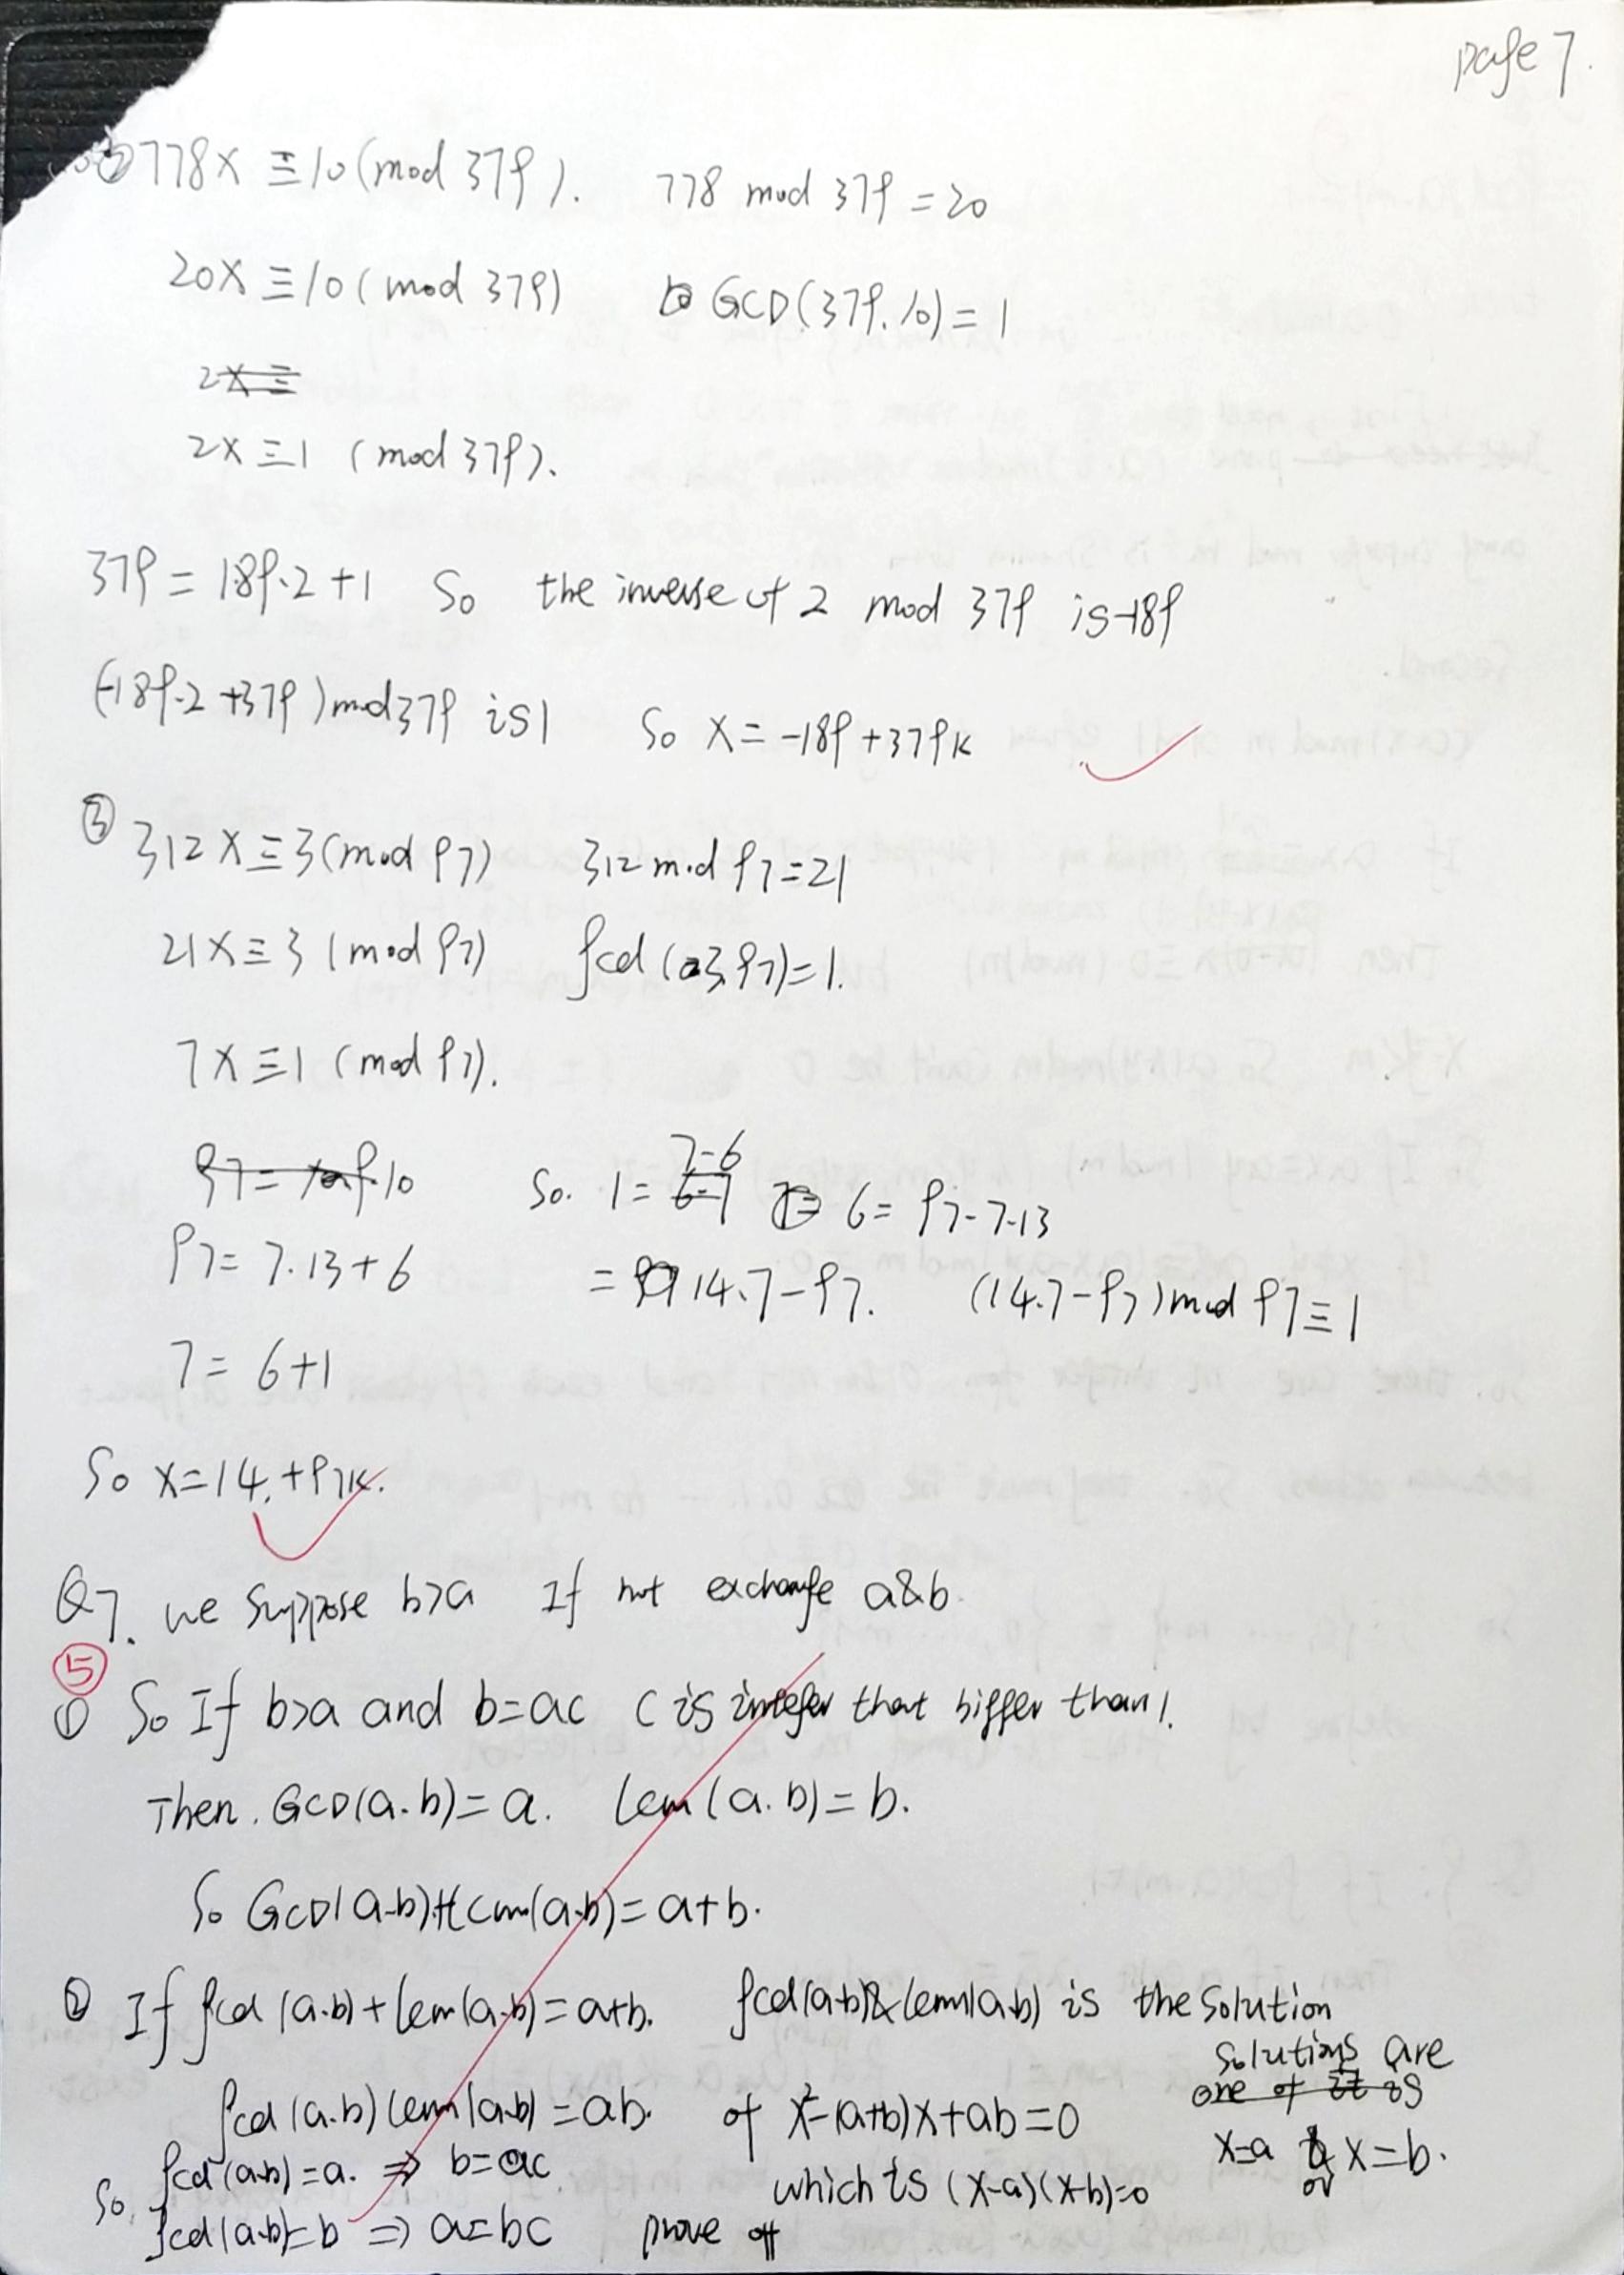 page 7.
② 778x ≡ 10 (mod 379). 778 mod 379 = 20
20x ≡ 10 (mod 379) GCD(379.10) = 1
2x ≡
2x ≡ 1 (mod 379).
379 = 189·2 + 1 So the inverse of 2 mod 379 is -189
(-189·2 + 379) mod 379 is 1 So x = -189 + 379k
③ 312x ≡ 3 (mod 97) 312 mod 97 = 21
21x ≡ 3 (mod 97) gcd (3.97) = 1.
7x ≡ 1 (mod 97).
7-6
97 = 9·10 So. 1 = 6-7 6 = 97-7·13
97 = 7·13 + 6 = 14·7 - 97. (14·7 - 97) mod 97 ≡ 1
7 = 6+1
So x = 14 + 97k.
Q7. we suppose b>a If not exchange a&b
⑤
① So If b>a and b=ac c is integer that bigger than 1.
Then. GCD(a.b) = a. lcm(a.b) = b.
So GCD(a.b)+lcm(a.b) = a+b.
② If gcd (a.b) + lcm(a.b) = a+b. gcd(a.b)& lcm(a.b) is the solution
solutions are
one of it is
gcd (a.b) lcm(a.b) = ab. of x²-(a+b)x+ab=0
x=a or x=b.
So. gcd(a.b) = a. ⇒ b=ac which is (x-a)(x-b)=0
gcd(a.b)=b ⇒ a=bc prove off